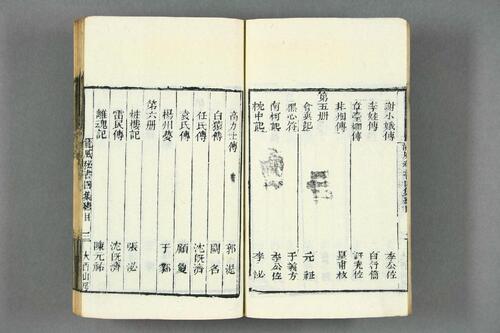 謝小娥傳 李公佐
李娃傳 白行簡
章臺柳傳 許堯佐
非烟傳 皇甫枚
第五册
會真記 元稹
黑心符 于義方
南柯記 李公佐
枕中記 李泌
高力士傳 郭湜
白猿傳 闕名
任氏傳 沈既濟
袁氏傳 顧夐
揚州夢 于鄴
第六册
妝樓記 張泌
雷民傳 沈既濟
離魂記 陳元祐
龍威秘書四集總目 三 大酉山房